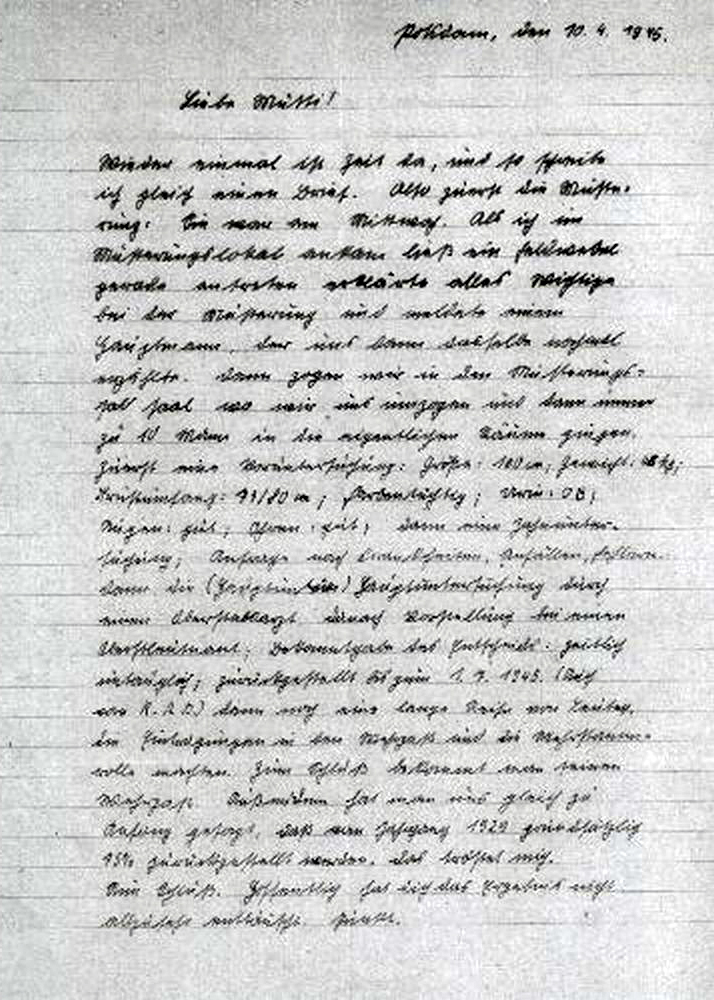 Potsdam, den 10. 4. 1945.
Liebe Mutti!
Wieder einmal ist Zeit da, und so schreibe
ich gleich einen Brief. Also zuerst die Muste-
rung: Sie war am Mittwoch. Als ich im
Musterungslokal ankam ließ ein Feldwebel
gerade antreten erklärte alles Wichtige
bei der Musterung und meldete einem
Hauptmann, der uns dann dasselbe nochmal
erzählte. Dann zogen wir in den Musterungs-
saal wo wir uns umzogen und dann immer
zu 10 Mann in die eigentlichen Räume gingen.
Zuerst eine Voruntersuchung: Größe: 160 cm; Gewicht: 48 kg;
Brustumfang: 73/80 cm; farbentüchtig; Urin: OB;
Augen: gut; Ohren: gut; dann eine Zahnunter-
suchung; Anfrage nach Krankheiten, Anfällen,
dann die Hauptuntersuchung durch
einen Oberstabsarzt danach Vorstellung bei einem
Oberstleutnant; Bekanntgabe des Entscheids: zeitlich
untauglich; zurückgestellt bis zum 1. 7. 1945. (Auch
von R.A.D.) dann noch eine lange Reihe von Leuten,
die Eintragungen in den Wehrpaß und die Wehrstamm-
rolle machten. Zum Schluß bekommt man seinen
Wehrpaß. Außerdem hat man uns gleich zu
Anfang gesagt, daß vom Jahrgang 1929 grundsätzlich
75% zurückgestellt werden. Das tröstet mich.
Nun Schluß. Hoffentlich hat dich das Ergebnis nicht
allzusehr enttäuscht.